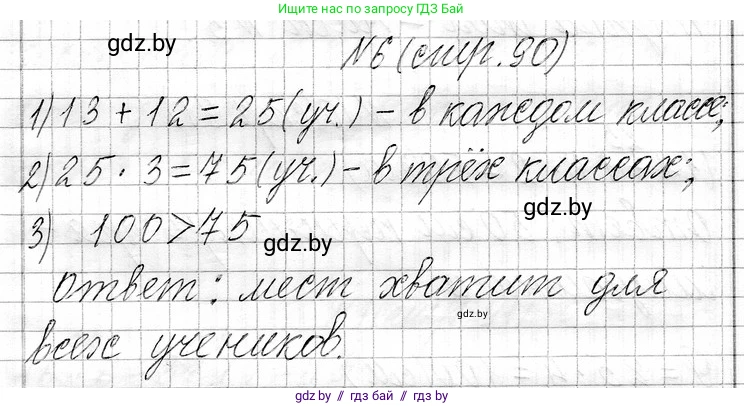 Ищите нас по запросу ГДЗ Бай
gdz.by
№6 (стр. 90)
1) 13 + 12 = 25 (уч.) - в каждом классе;
2) 25 · 3 = 75 (уч.) - в трёх классах;
gdz.by
3) 100 > 75
gdz.by
Ответ: мест хватит для
gdz.by
всех учеников.
gdz.by // гдз бай // gdz.by